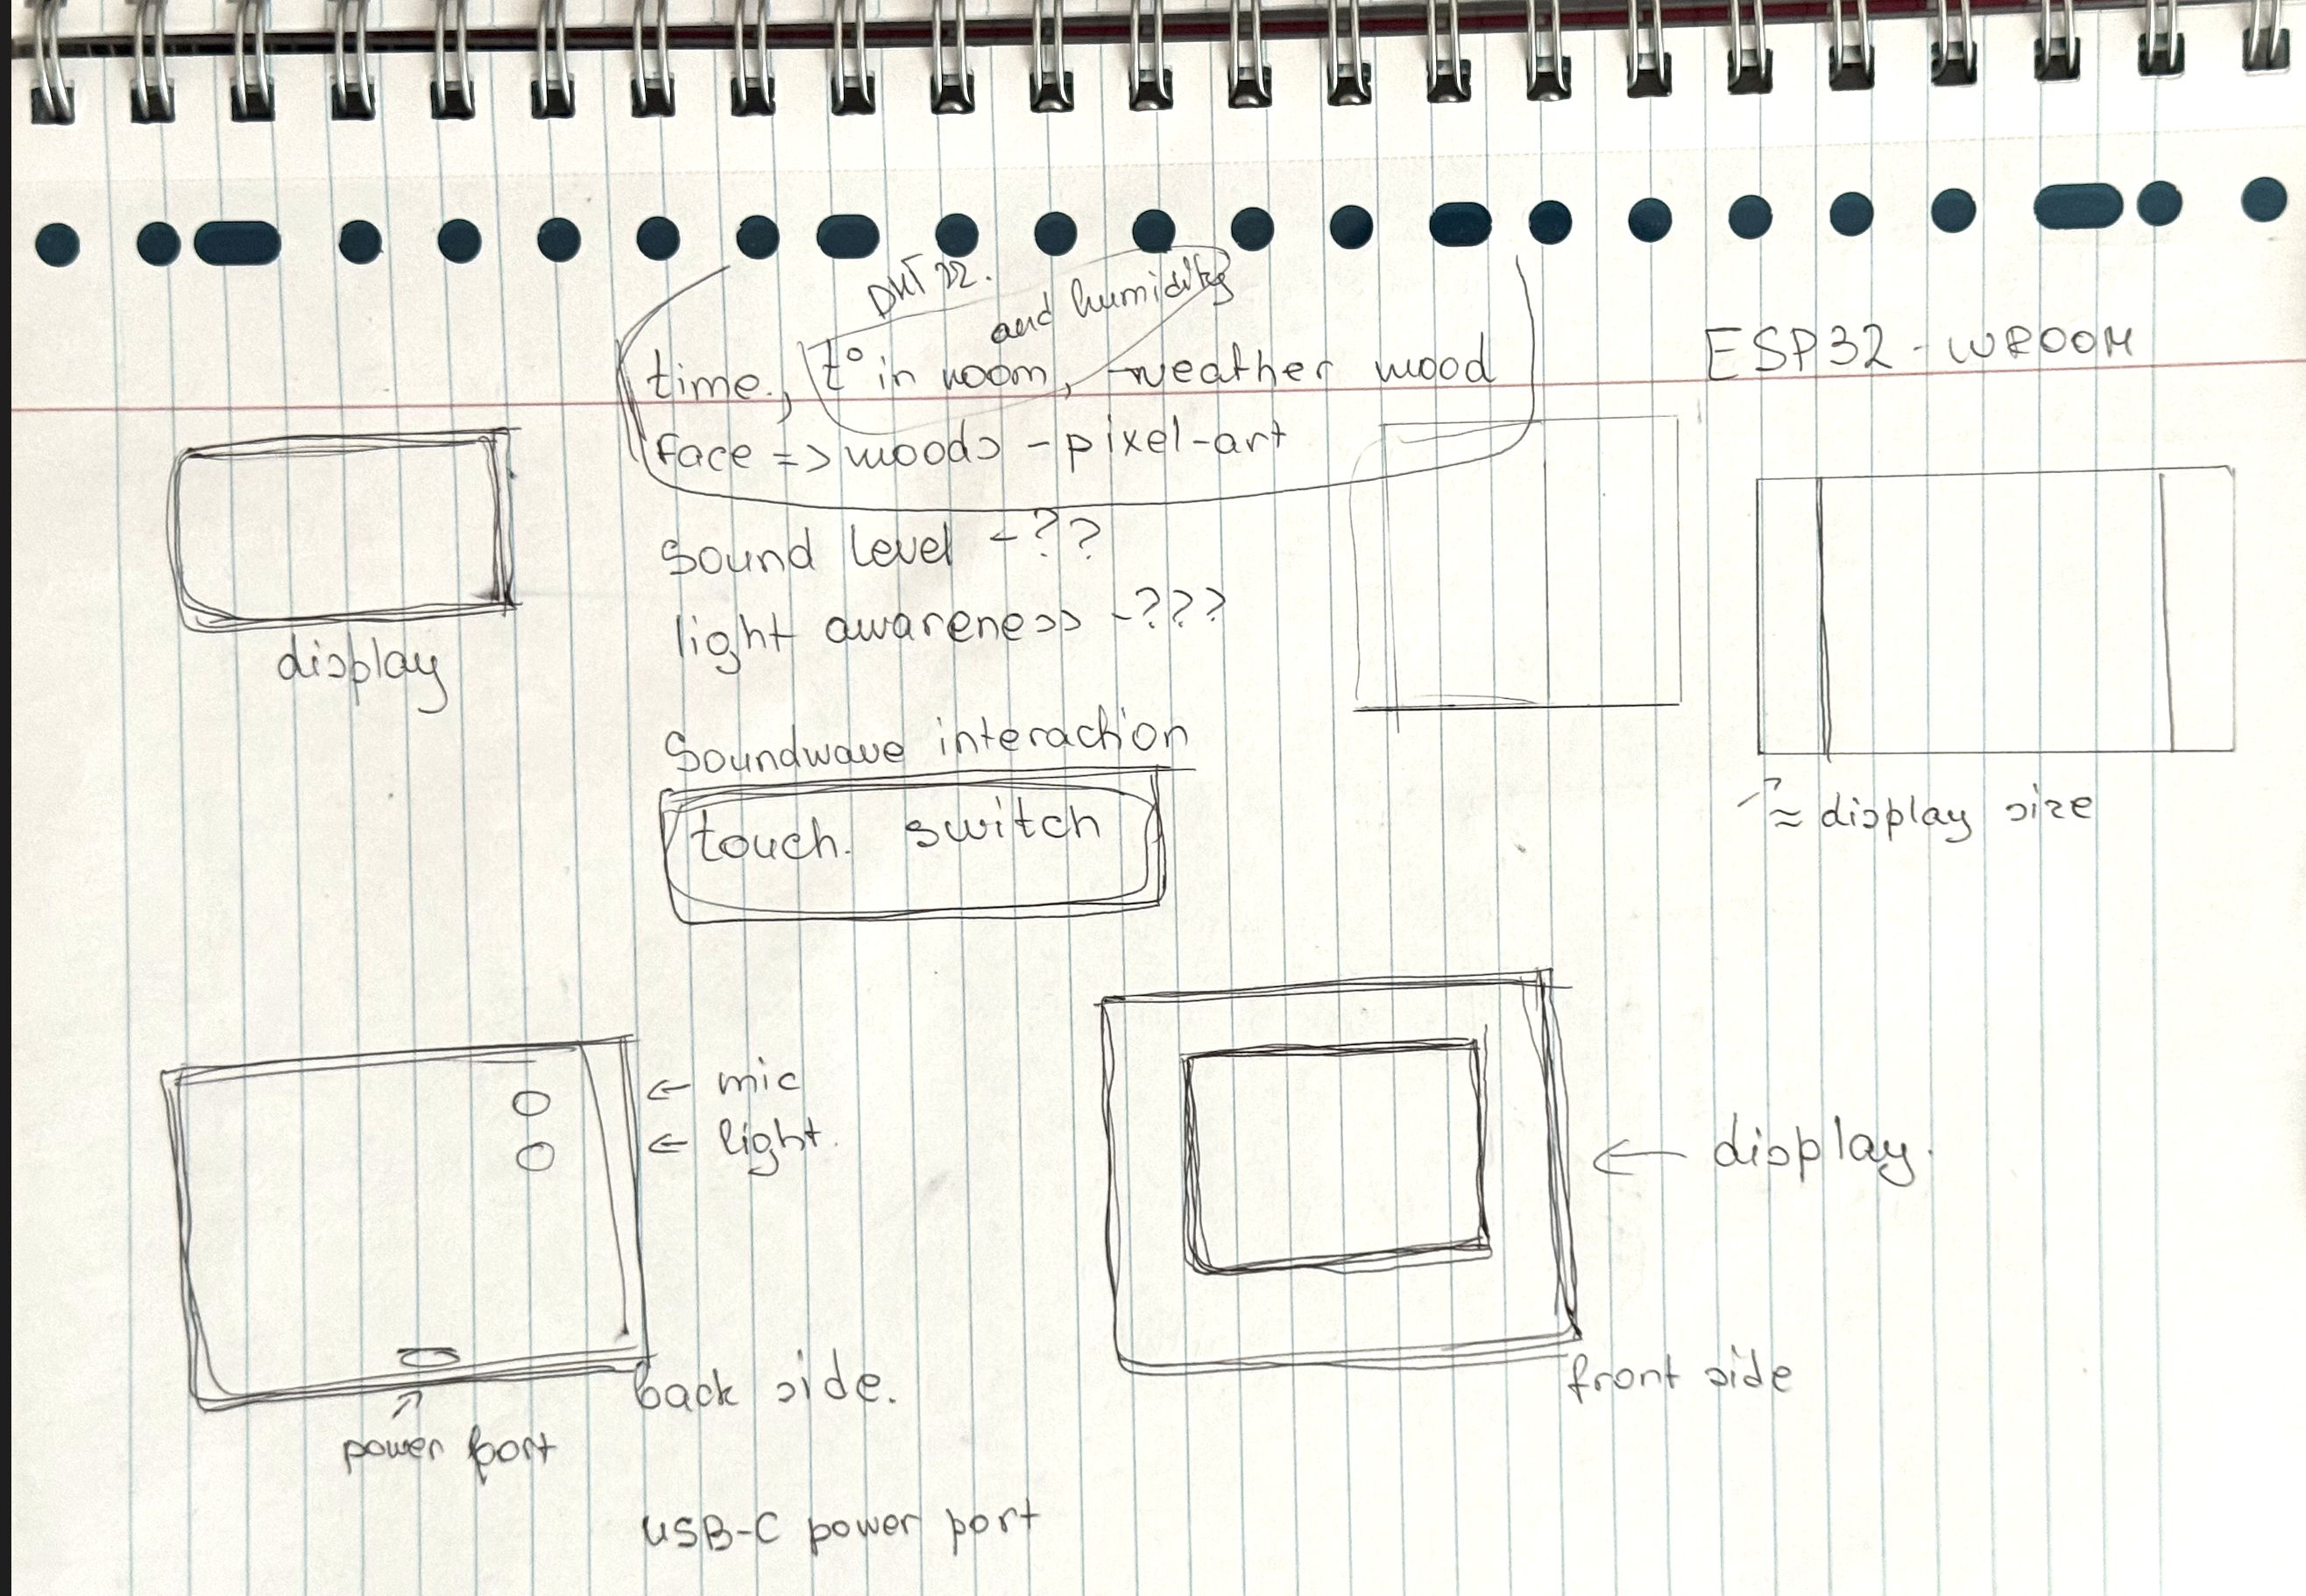 DHT 22.
and humidity
time., t° in room, weather mood
face => moods - pixel-art
ESP32 - WROOM
display
sound level - ??
light awareness - ???
Soundwave interaction
touch. switch
≈ display size
← mic
← light.
← display.
back side.
front side
power port
USB-C power port